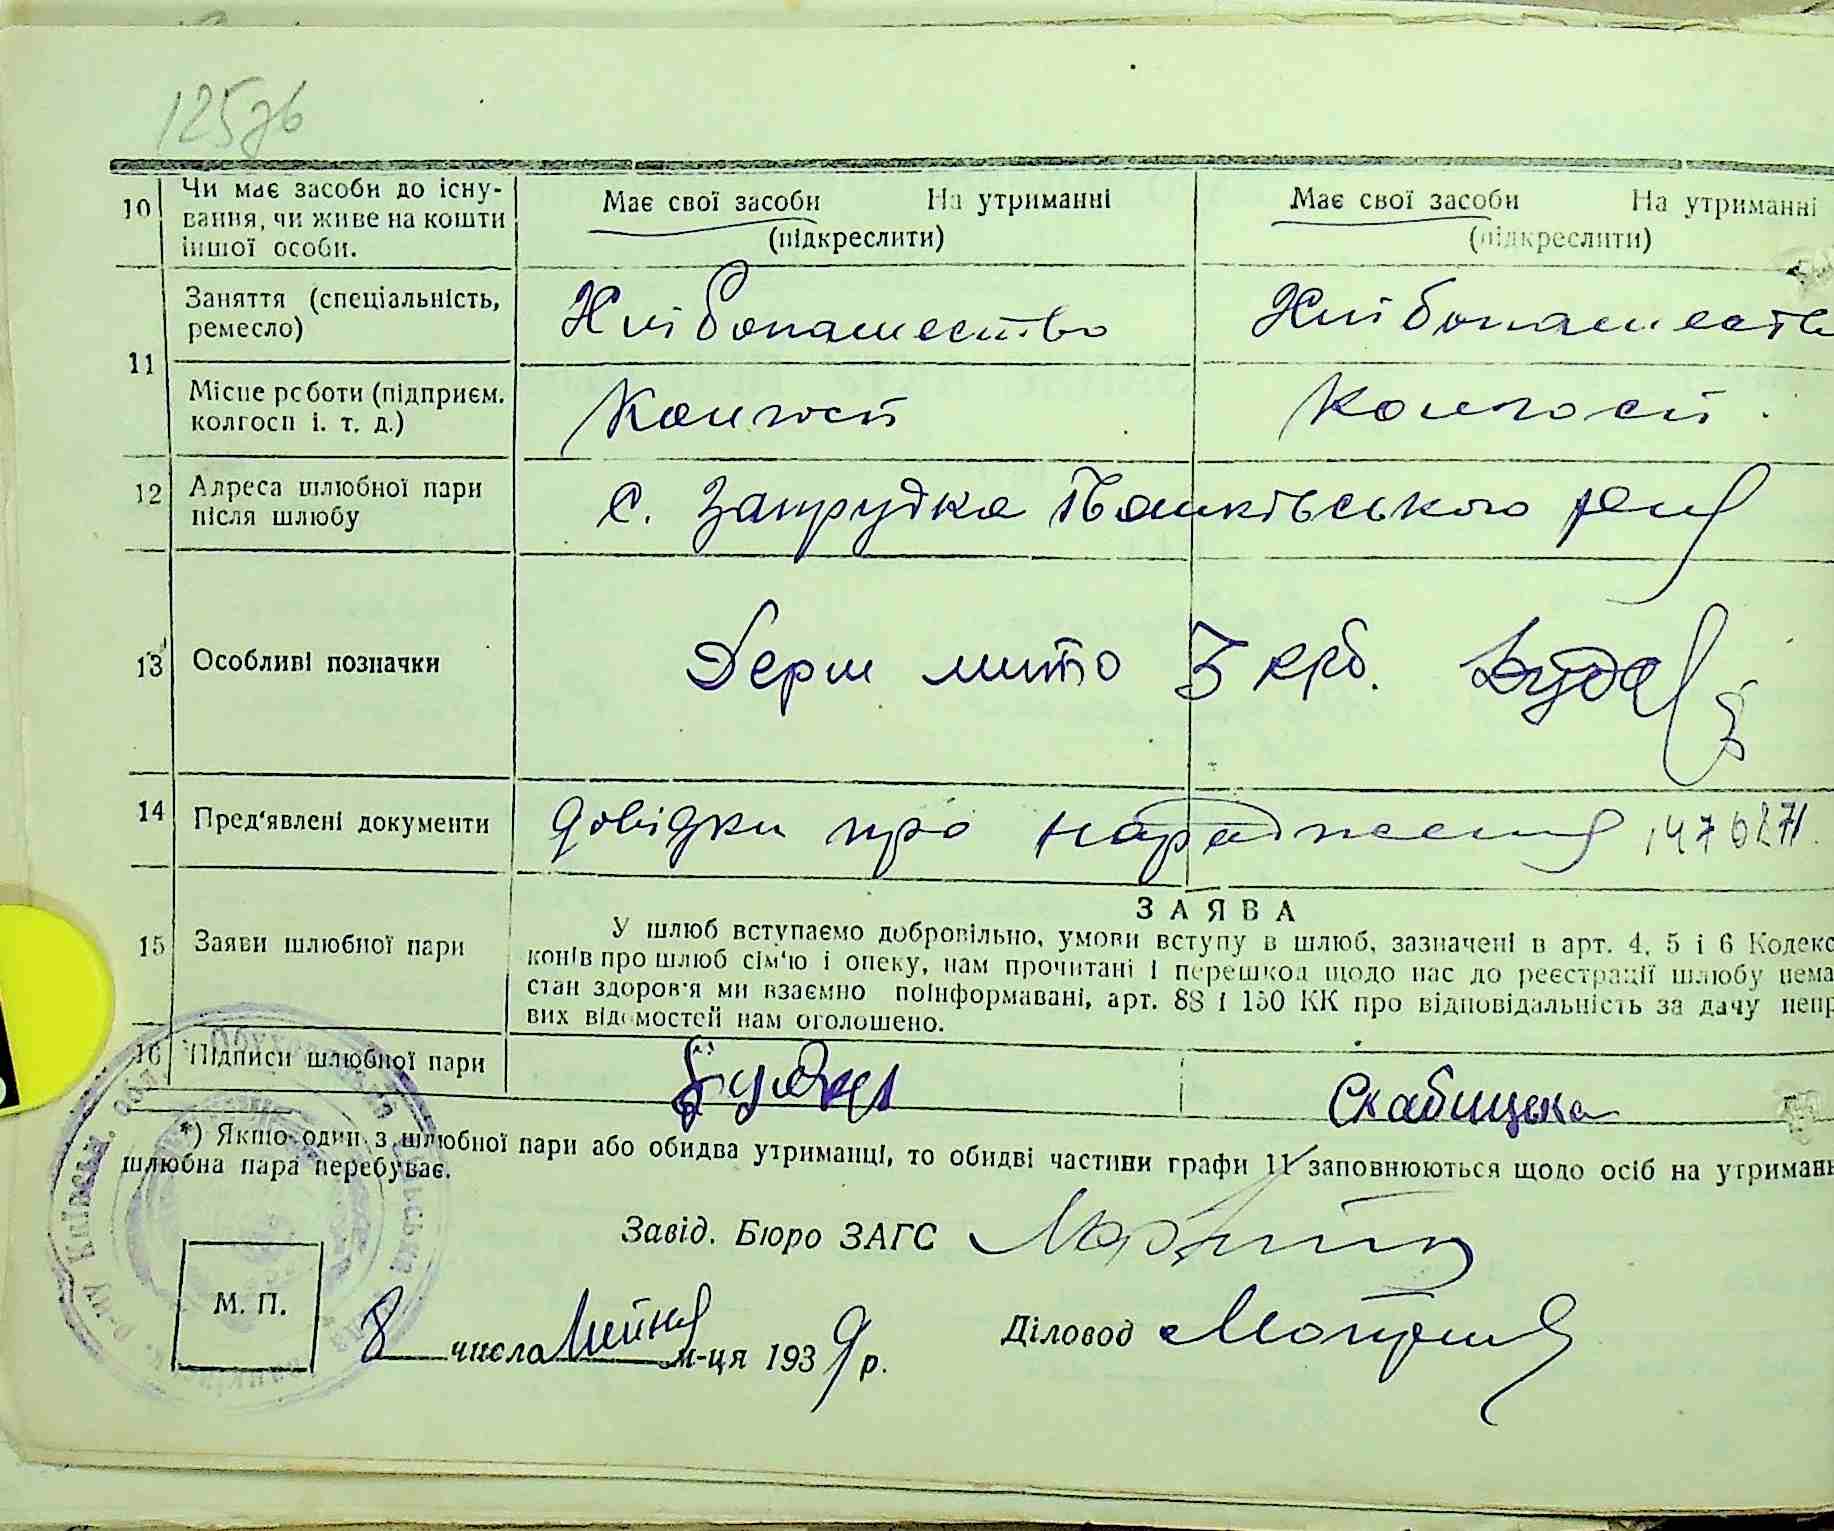 125зв
10 Чи має засоби до існу-
вання, чи живе на кошти
іншої особи.
Має свої засоби На утриманні
(підкреслити)
Має свої засоби На утриманні
(підкреслити)
11
Заняття (спеціальність,
ремесло)
Хлібопашество
Хлібопашеств
Місце роботи (підприєм.
колгосп і. т. д.)
Колгосп
Колгосп
12 Адреса шлюбної пари
після шлюбу
с. Запрудка Іванківського рай
13 Особливі позначки
Держ мито 5 крб.
14 Пред'явлені документи
довідки про народження 1476271.
15 Заяви шлюбної пари
ЗАЯВА
У шлюб вступаємо добровільно, умови вступу в шлюб, зазначені в арт. 4, 5 і 6 Кодекс
конів про шлюб сім'ю і опеку, нам прочитані і перешкод щодо нас до реєстрації шлюбу нема
стан здоров'я ми взаємно поінформавані, арт. 88 і 150 КК про відповідальність за дачу непр
вих відомостей нам оголошено.
16 Підписи шлюбної пари
Скабицька
*) Якщо один з шлюбної пари або обидва утриманці, то обидві частини графи 11 заповнюються щодо осіб на утриман
шлюбна пара перебуває.
Завід. Бюро ЗАГС
М. П.
8 числа м-ця 1939 р.
Діловод